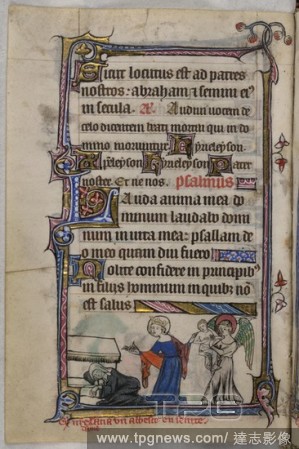 Sicut locutus est ad patres
nostros: abraham & semini ei⁹
in secula. A. Audiui uocem de
celo dicentem beati mortui qui in do
mino moriuntur. Kyrieleyson
xp̄eleyson Kyrieleyson Pater
noster. Et ne nos. psalmus
Lauda anima mea do
minum laudabo domi
num in uita mea: psallam de
o meo quam diu fuero
Nolite confidere in principib⁹
in filiis hominum in quib⁹ nō
est salus
TPG
www.tpgnews.com/ 達志影像